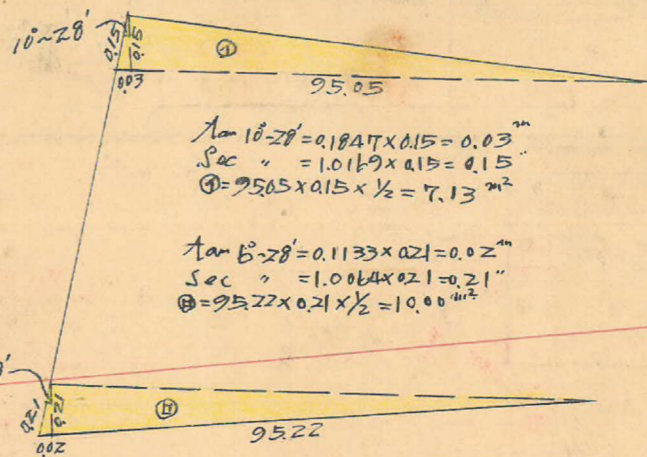 10°~28'
0.15
0.15
0.03
㋑
95.05
tan 10°-28' = 0.1847 x 0.15 = 0.03 m
Sec " = 1.0169 x 0.15 = 0.15 "
㋑ = 95.05 x 0.15 x ½ = 7.13 m²
tan 6°-28' = 0.1133 x 0.21 = 0.02 m
Sec " = 1.0064 x 0.21 = 0.21 "
㋺ = 95.22 x 0.21 x ½ = 10.00 m²
0.21
0.21
0.02
㋺
95.22